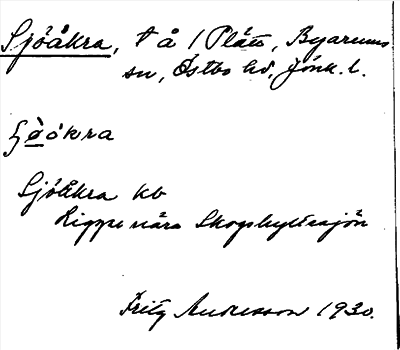 Sjöåkra, t å 1 Plåts, Byarums
sn, Östbo hd, Jönk. l.
Sjöåkra kb
Ligger nära Skogshyltesjön
Fritz Andersson 1930.